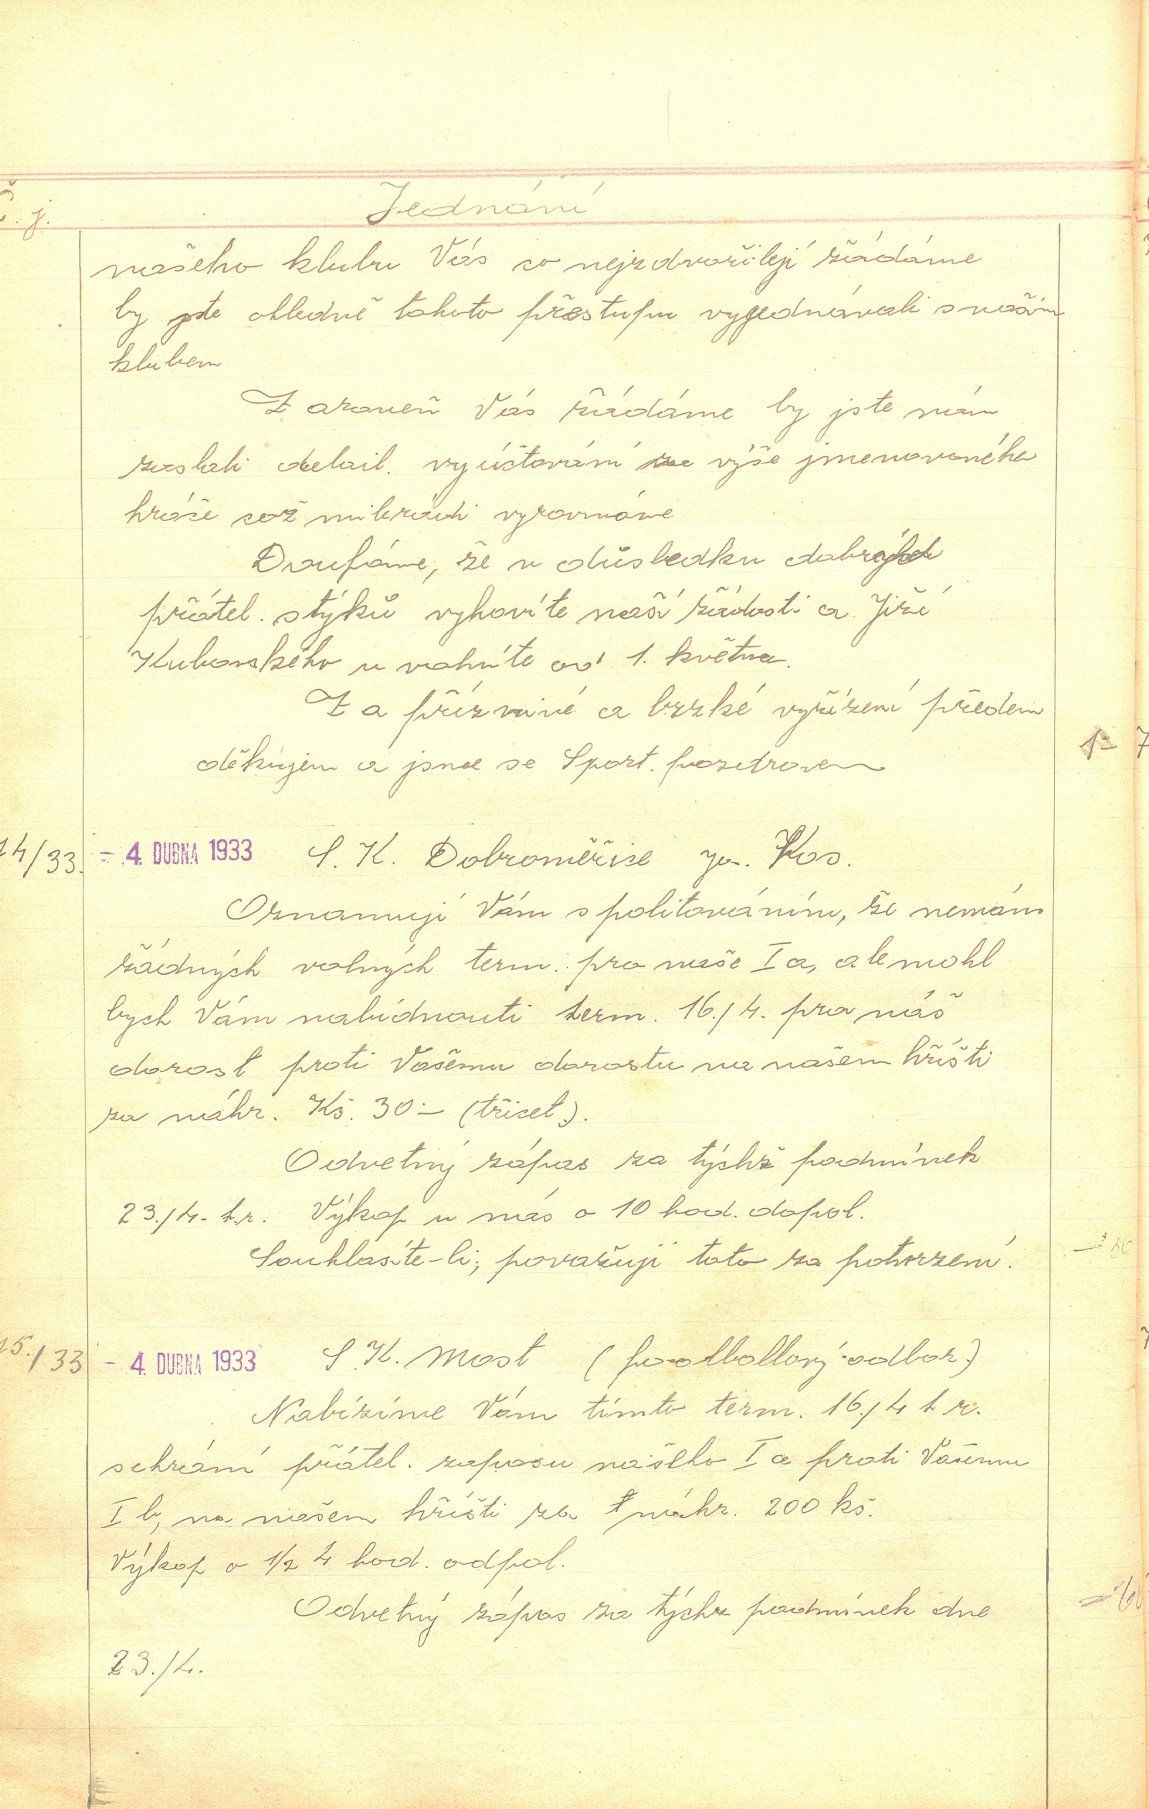 Č. j. Jednání
našeho klubu Vás co nejzdvořileji žádáme
by jste ohledně tohoto přestupu vyjednávali s naším
klubem
Zároveň Vás žádáme by jste nám
zaslali detail. vyúčtování za výše jmenovaného
hráče což milerádi vyrovnáme
Doufáme, že v důsledku dobrých
přátel. styků vyhovíte naší žádosti a Jiří
Kubovského uvolníte od 1. května.
Za příznivé a brzké vyřízení předem
děkujem a jsme se Sport. pozdravem
14/33. - 4. DUBNA 1933 S. K. Dobroměřice Kos.
Oznamuji Vám s politováním, že nemám
žádných volných term. pro naše Ia, ale mohl
bych Vám nabídnouti term. 16./4. pro náš
dorost proti Vašemu dorostu na našem hřišti
za náhr. Kč. 30.— (třicet).
Odvetný zápas za týchž podmínek
23./4. t.r. Výkop u nás o 10 hod. dopol.
Souhlasíte-li, považuji toto za potvrzení.
15./33 - 4. DUBNA 1933 S. K. Most (footballový odbor)
Nabízíme Vám tímto term. 16./4 t. r.
sehrání přátel. zápasu našeho Ia proti Vašemu
Ib, na našem hřišti za náhr. 200 kč.
Výkop o 1/2 4 hod. odpol.
Odvetný zápas za týchz podmínek dne
23./4.